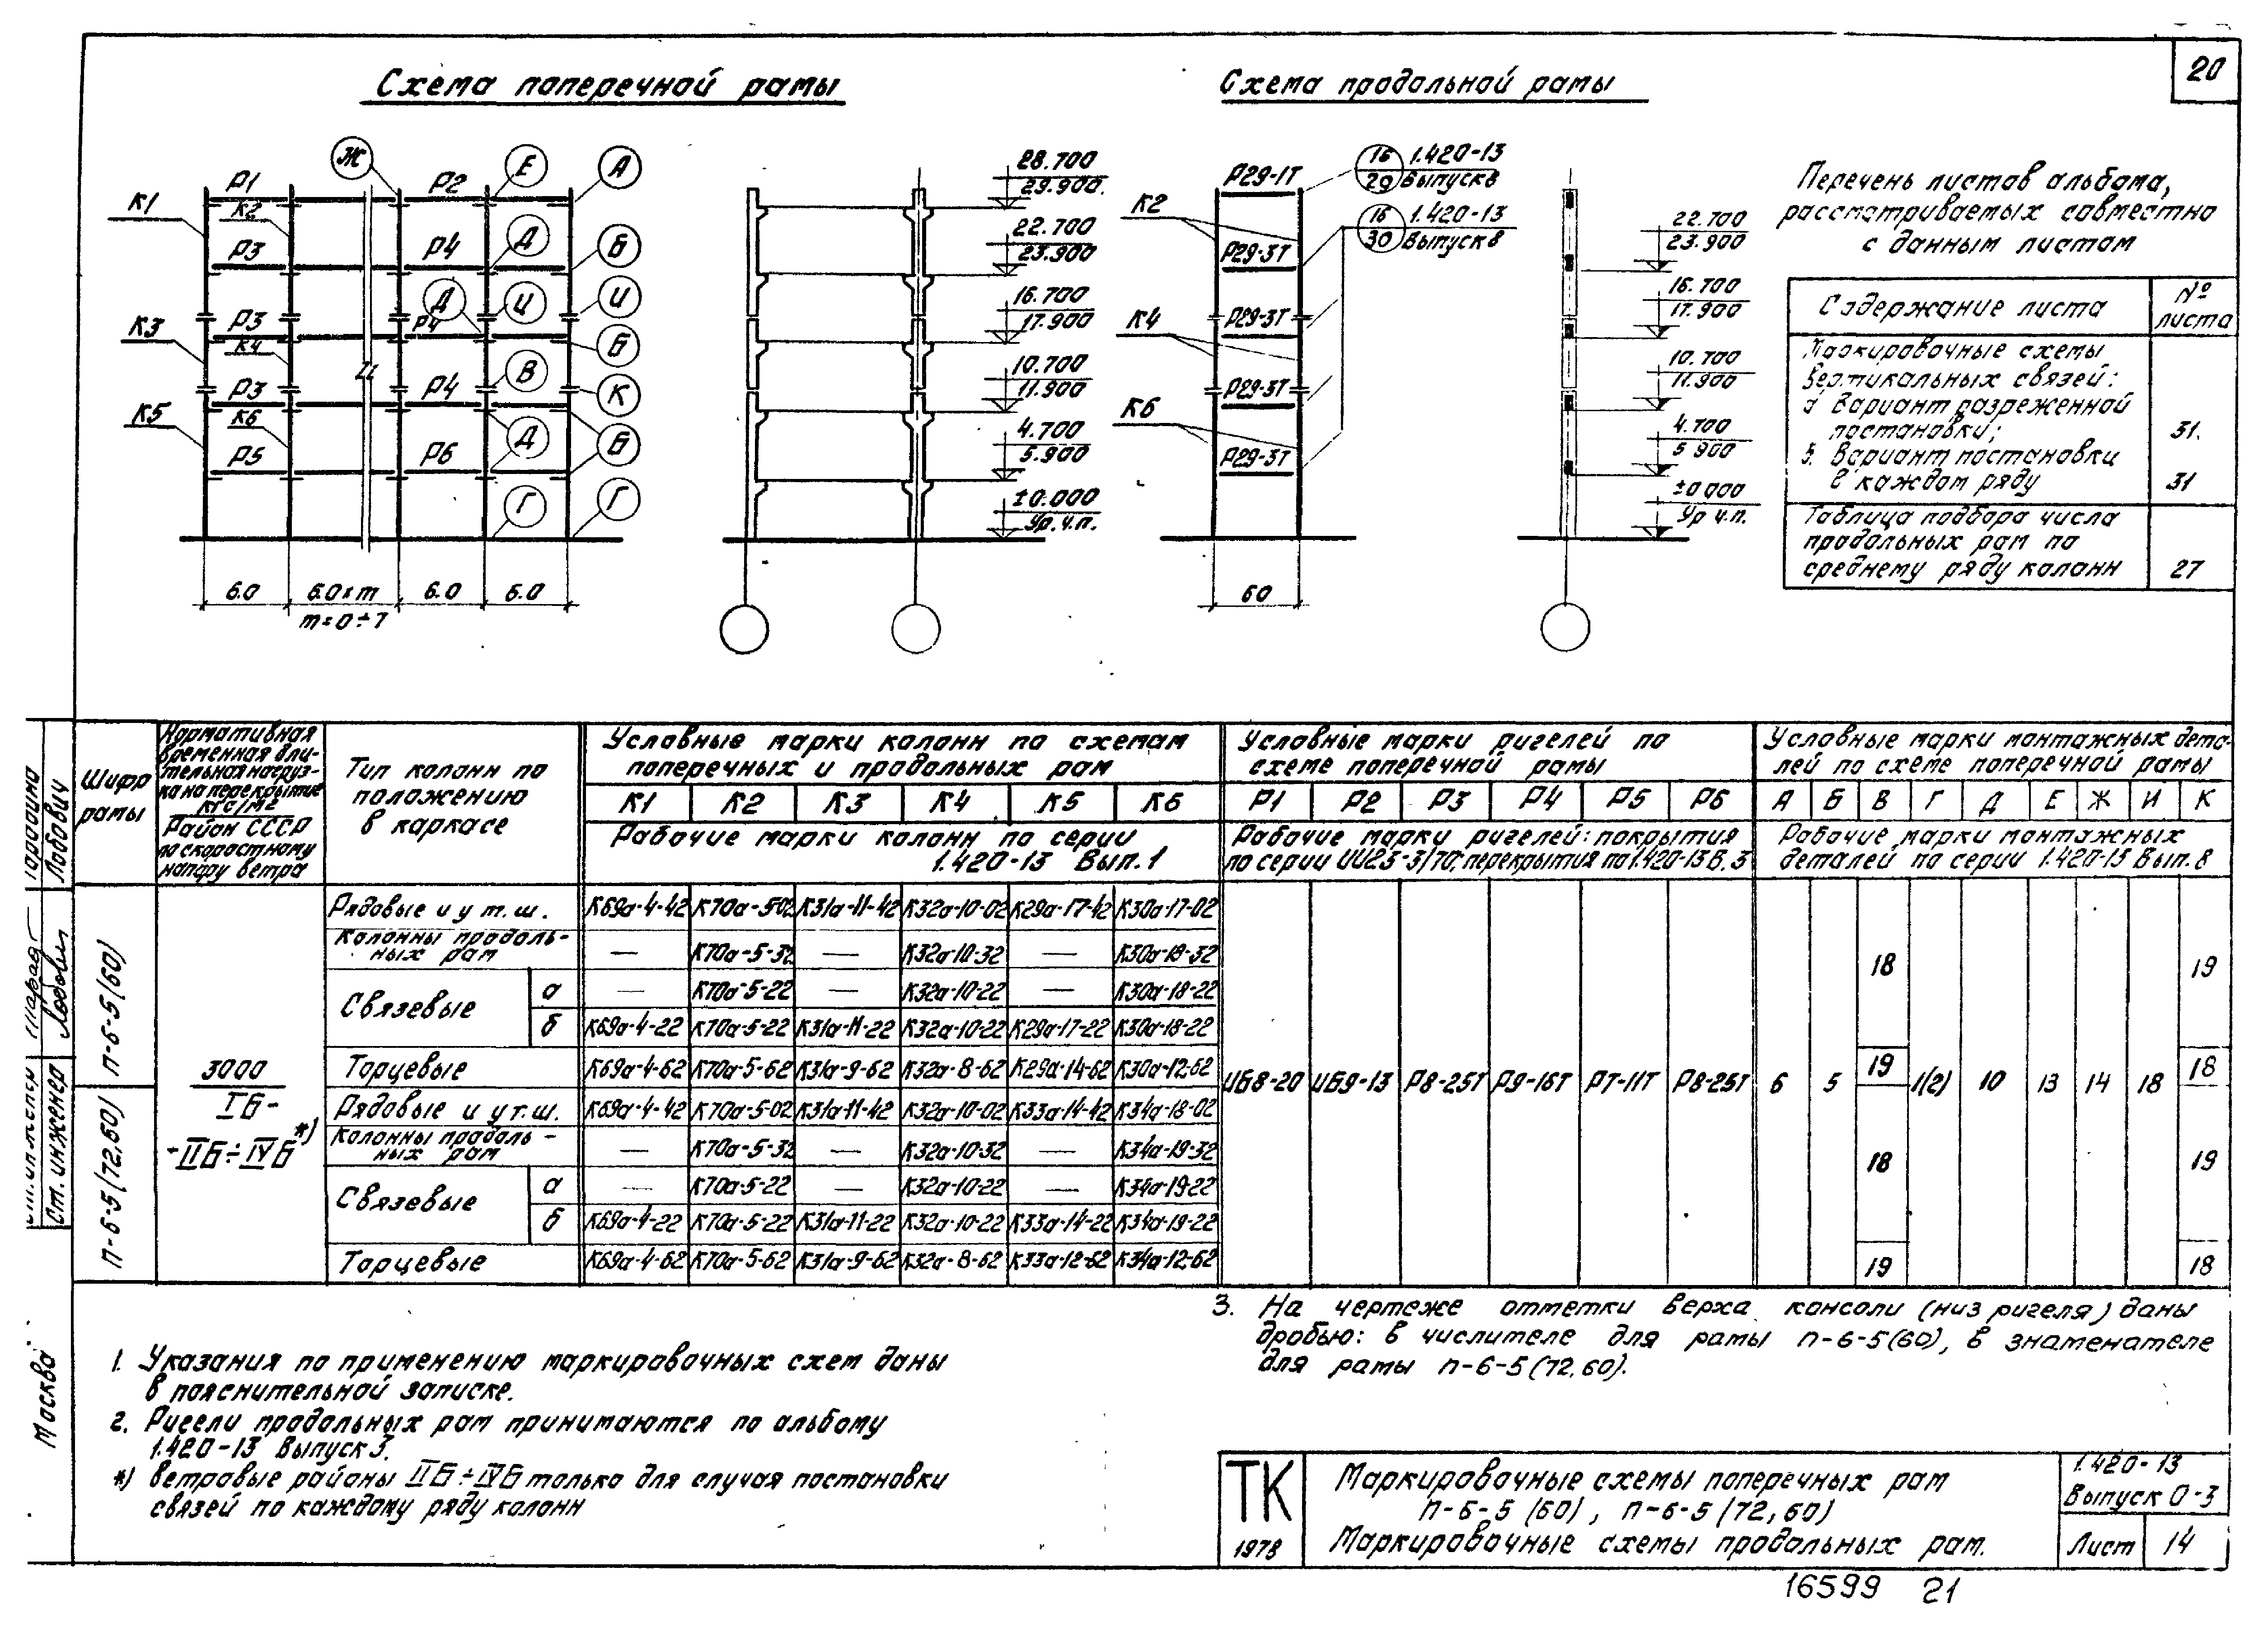 20
Схема поперечной рамы
Схема продольной рамы
Ж Е А
Р1 Р2
К1 К2
Д Б
Р3 Р4
Д И И
К3 Р3 Р4
К4 Б
В К
Р3 Р4
К5 К6
Д Б
Р5 Р6
Г Г
6.0 6.0×m 6.0 6.0
m=0÷7
28.700
29.900
22.700
23.900
16.700
17.900
10.700
11.900
4.700
5.900
±0.000
Ур.ч.п.
Р29-1Т
16 1.420-13
20 Выпуск 8
К2
16 1.420-13
30 Выпуск 8
Р29-3Т
К4 Р29-3Т
Р29-3Т
К6
Р29-3Т
60
22.700
23.900
16.700
17.900
10.700
11.900
4.700
5 900
±0 000
Ур ч.п.
Перечень листов альбома,
рассматриваемых совместно
с данным листом
Содержание листа
№
листа
Маркировочные схемы
вертикальных связей:
Вариант разреженной
постановки; 31.
Вариант постановки
в каждом ряду 31
Таблица подбора числа
продольных рам по
среднему ряду колонн 27
Шифр
рамы
Нормативная
временная дли-
тельная нагруз-
ка на перекрытие
кгс/м2
Район СССР
по скоростному
напору ветра
Тип колонн по
положению
в каркасе
Условные марки колонн по схемам
поперечных и продольных рам
К1 К2 К3 К4 К5 К6
Рабочие марки колонн по серии
1.420-13 Вып.1
Условные марки ригелей по
схеме поперечной рамы
Р1 Р2 Р3 Р4 Р5 Р6
Рабочие марки ригелей: покрытия
по серии ИИ23-3/70; перекрытия по 1.420-13 В.3
Условные марки монтажных дета-
лей по схеме поперечной рамы
А Б В Г Д Е Ж И К
Рабочие марки монтажных
деталей по серии 1.420-13 Вып. 8
П-6-5(60)
П-6-5(72,60)
3000
IБ-
-IIБ÷IVБ *)
Рядовые и у т.ш. К69а-4-42 К70а-502 К31а-11-42 К32а-10-02 К29а-17-42 К30а-17-02
Колонны продоль-
ных рам — К70а-5-32 — К32а-10-32 — К30а-18-32
Связевые
а — К70а-5-22 — К32а-10-22 — К30а-18-22
б К69а-4-22 К70а-5-22 К31а-11-22 К32а-10-22 К29а-17-22 К30а-18-22
Торцевые К69а-4-62 К70а-5-62 К31а-9-62 К32а-8-62 К29а-14-62 К30а-12-62
Рядовые и у т.ш. К69а-4-42 К70а-5-02 К31а-11-42 К32а-10-02 К33а-14-42 К34а-18-02
Колонны продоль-
ных рам — К70а-5-32 — К32а-10-32 — К34а-19-32
Связевые
а — К70а-5-22 — К32а-10-22 — К34а-19-22
б К69а-4-22 К70а-5-22 К31а-11-22 К32а-10-22 К33а-14-22 К34а-19-22
Торцевые К69а-4-62 К70а-5-62 К31а-9-62 К32а-8-62 К33а-12-62 К34а-12-62
ИБ8-20 ИБ9-13 Р8-25Т Р9-16Т Р7-11Т Р8-25Т
6 5 1(2) 10 13 14 18
18 19
19 18
18 19
19 18
1. Указания по применению маркировочных схем даны
в пояснительной записке.
2. Ригели продольных рам принимаются по альбому
1.420-13 Выпуск 3.
*) Ветровые районы IIБ÷IVБ только для случая постановки
связей по каждому ряду колонн
3. На чертеже отметки верха консоли (низ ригеля) даны
дробью: в числителе для рамы П-6-5(60), в знаменателе
для рамы П-6-5(72,60).
ТК
1978
Маркировочные схемы поперечных рам
П-6-5 (60), П-6-5 (72,60)
Маркировочные схемы продольных рам.
1.420-13
Выпуск 0-3
Лист 14
16599 21
Лобович
Ст. инженер
Москва